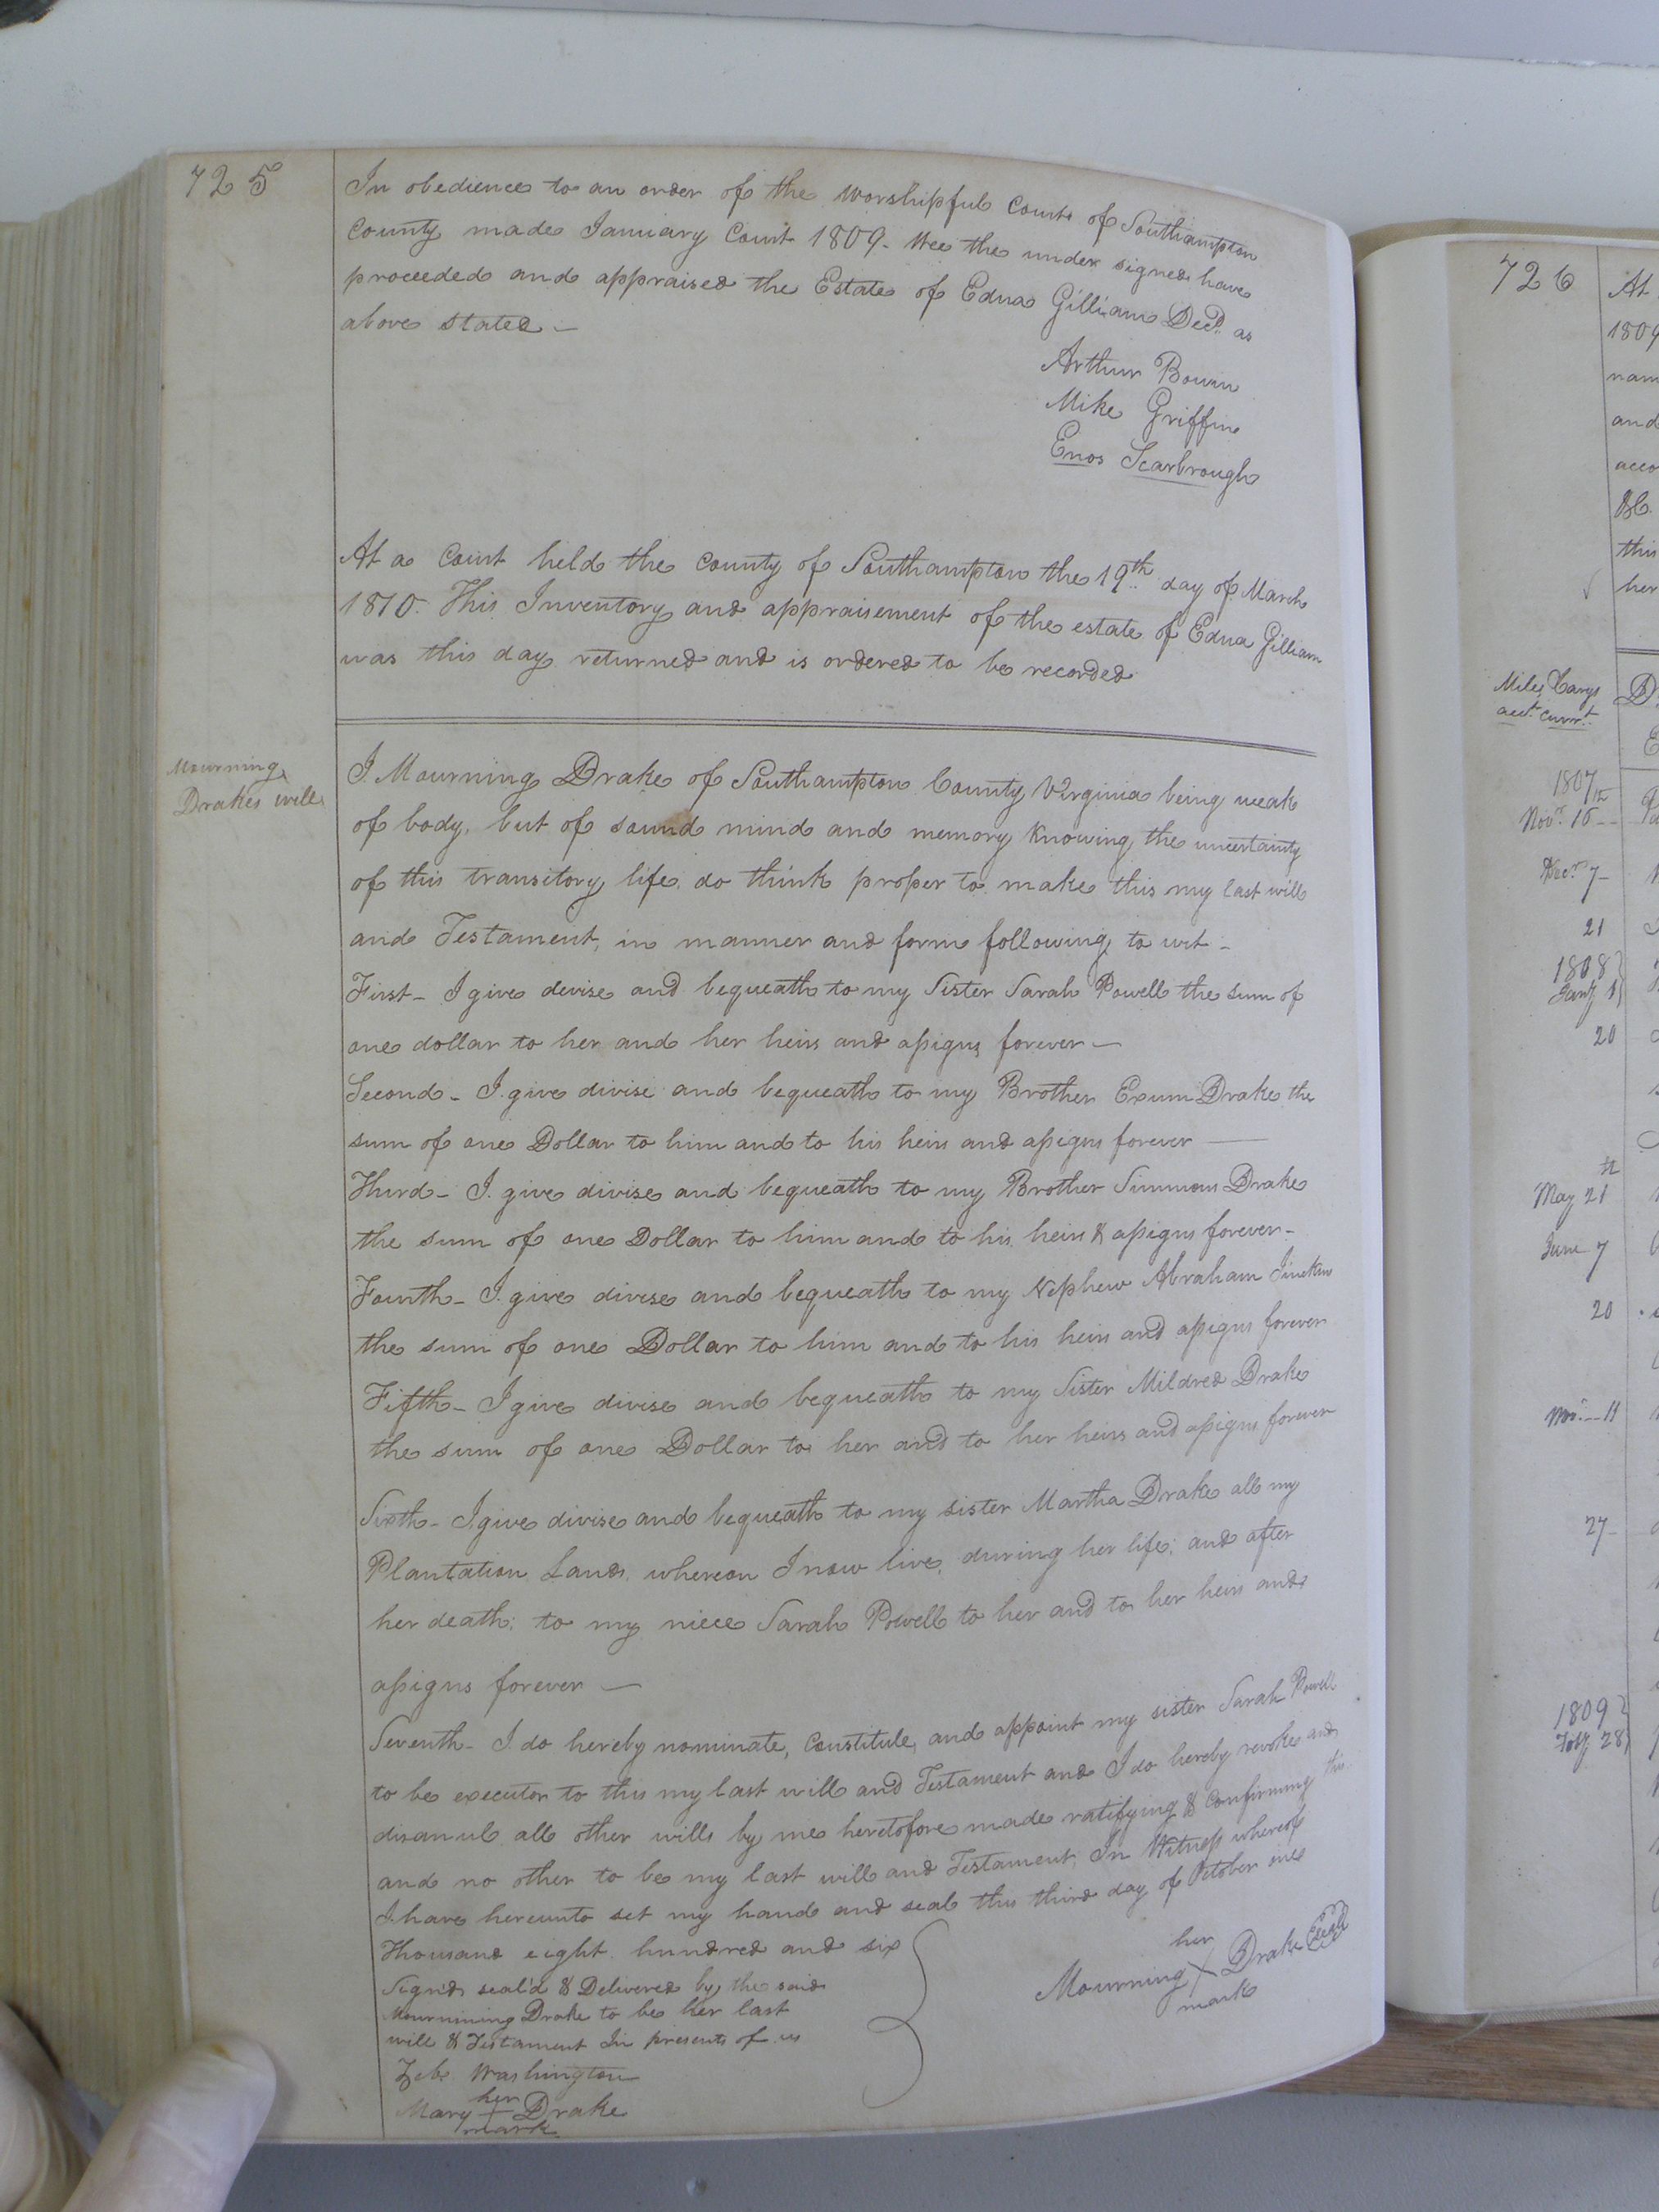 725
In obedience to an order of the worshipful Court of Southampton
County made January Court 1809. Wee the under signed have
proceeded and appraised the Estate of Edna Gilliam Decd. as
above stated –
Arthur Bowin
Mike Griffin
Enos Scarbrough
At a Court held the County of Southampton the 19th day of March
1810. This Inventory and appraisement of the estate of Edna Gilliam
was this day returned and is ordered to be recorded
Mourning
Drakes will
I Mourning Drake of Southampton County Virginia being weak
of body, but of sound mind and memory Knowing the uncertainty
of this transitory life, do think proper to make this my last will
and Testament, in manner and form following to wit –
First – I give devise and bequeath to my Sister Sarah Powell the sum of
one dollar to her and her heirs and assigns forever –
Second – I give divise and bequeath to my Brother Exum Drake the
sum of one Dollar to him and to his heirs and assigns forever –
Third – I give divise and bequeath to my Brother Simmons Drake
the sum of one Dollar to him and to his heirs & assigns forever –
Fourth – I give divise and bequeath to my Nephew Abraham
the sum of one Dollar to him and to his heirs and assigns forever
Fifth – I give divise and bequeath to my Sister Mildred Drake
the sum of one Dollar to her and to her heirs and assigns forever
Sixth – I give divise and bequeath to my sister Martha Drake all my
Plantation Land, whereon I now live, during her life; and after
her death; to my niece Sarah Powell to her and to her heirs and
assigns forever –
Seventh – I do hereby nominate, Constitute, and appoint my sister Sarah Powell
to be executor to this my last will and Testament and I do hereby revoke and
disanul all other wills by me heretofore made ratifying & Confirming this
and no other to be my last will and Testament. In Witness whereof
I have hereunto set my hand and seal this third day of October one
Thousand eight hundred and six
Sign'd seal'd & Delivered by the said
Mournining Drake to be her last
will & Testament In presents of us
Zeb. Washington
her
Mary + Drake
mark
her
Mourning X Drake Seal
mark
726
At
1809
nam
and
acco
this
her
Miles Carys
acct. Currt.
D
E
1807
Novr. 16th
Decr. 7
21
1808
Jany 1
20
May 21st
June 7
20
Novr. 11
27
1809
Feby 28